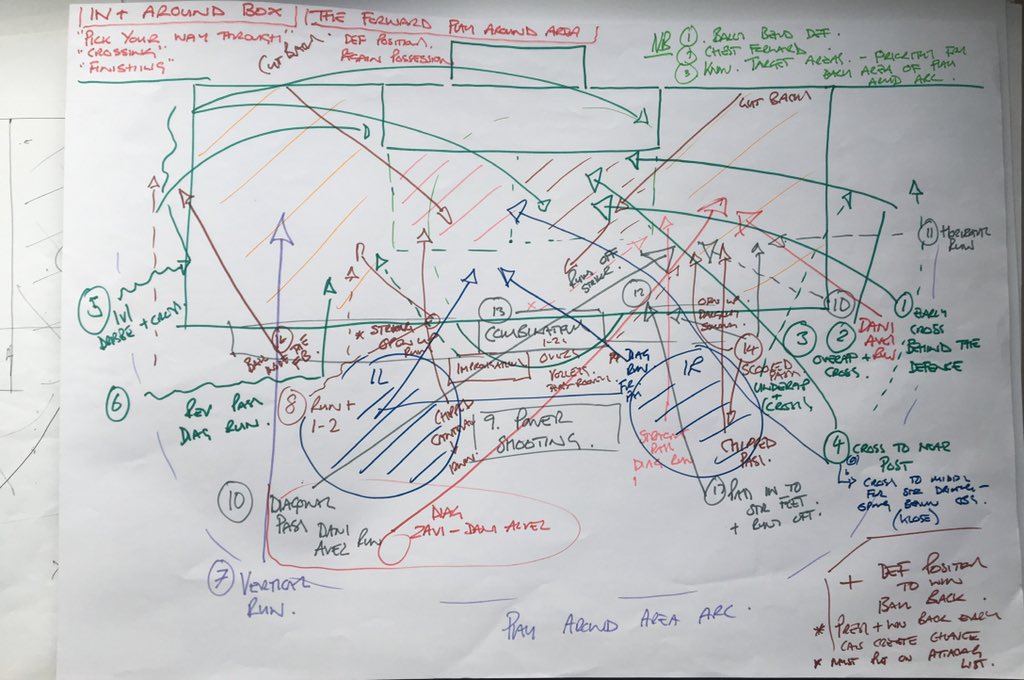 IN + AROUND BOX
"PICK YOUR WAY THROUGH"
"CROSSING"
"FINISHING"
THE FORWARD PLAY AROUND AREA
DEF POSITION.
AGAIN POSSESSION
NB ① BALLS BEHIND DEF.
② CHEST FORWARD.
③ KNOW TARGET AREAS. - PRIORITY FM
BACK AREA OF PLAY
AROUND ARC.
CUT BACK
CUT BACK
⑪ HORIZONTAL
RUN
⑤ 1V1
+ CROSS.
⑥ REV PASS
DIAG RUN.
* STRONG
OPEN UP
RUN
RUNS OFF
STRIKER.
⑫
⑬
COMBINATION
1-2'S
IMPROVISATION
VOLLEYS
1L
1R
⑧ RUN +
1-2
9. POWER
SHOOTING.
DIAG
RUN
⑭
SCOOPED
PASS
CHIPPED
PASS.
STRAIGHT
PASS
DIAG RUN
⑩
DANI
ALVEZ
RUN.
① EARLY
CROSS
BEHIND THE
DEFENCE
② OVERLAP +
CROSS.
③ UNDERLAP
+
CROSS
④ CROSS TO NEAR
POST
CROSS TO MIDDLE
FOR STR
(KLOSE)
PASS IN TO
STR FEET
+ RUNS OFF.
⑩ DIAGONAL
PASS DANI
ALVEZ RUN
DIAG
ZAVI - DANI ALVEZ
⑦ VERTICAL
RUN.
PLAY AROUND AREA ARC.
+ DEF POSITION
TO WIN
BALL BACK.
* PRESS + WIN BACK EARLY
CAN CREATE CHANCE
* MUST PUT ON ATTACKING
LIST.